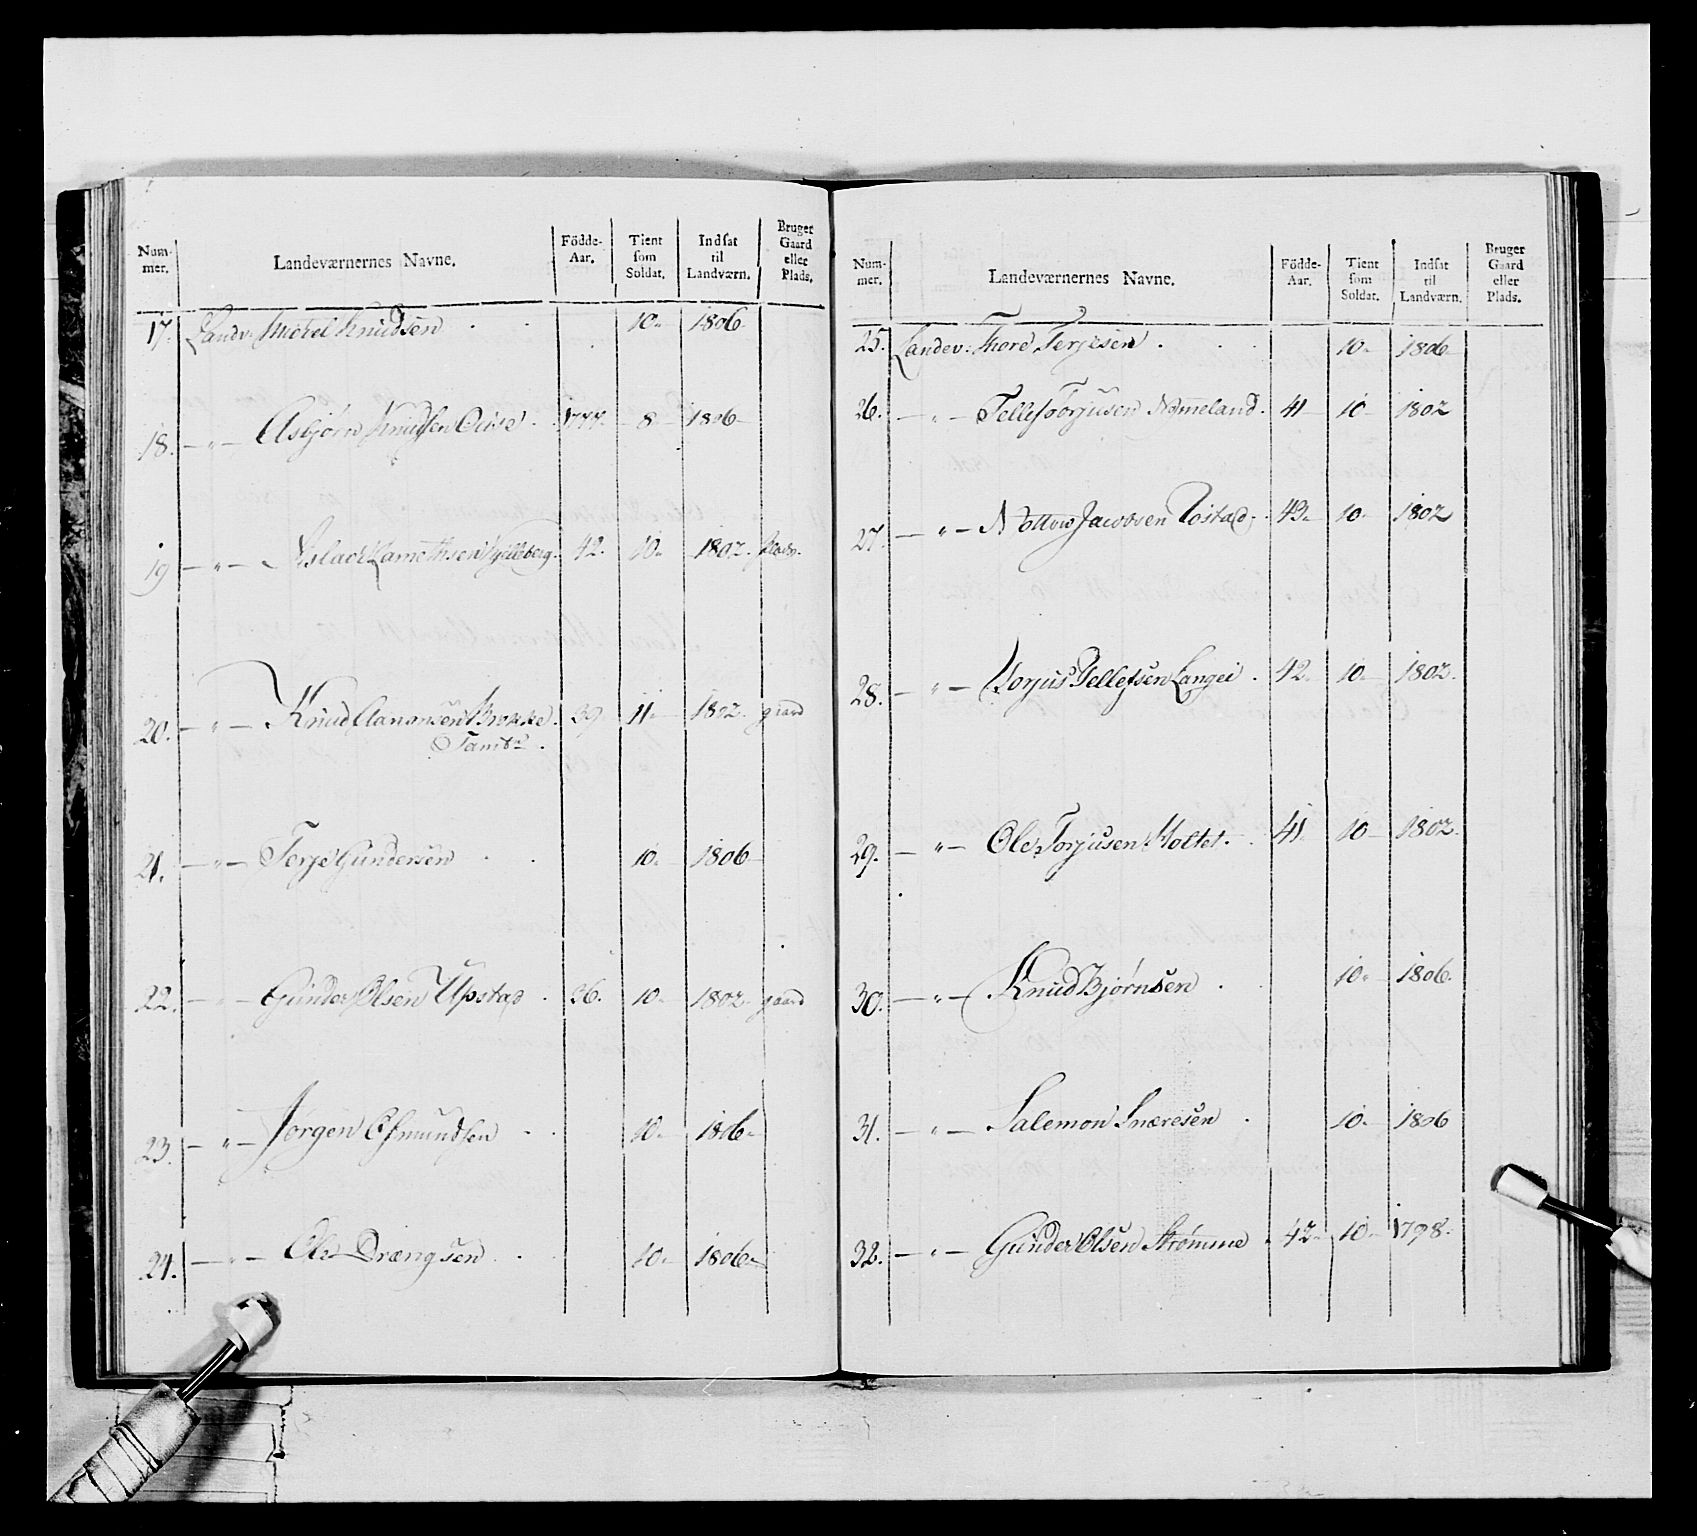 Num- mer. Landeværnernes Navne. Födde- Aar. Tient som Soldat. Indsat til Landværn. Bruger Gaard eller Plads.
17. Landv: Michel Knudsen 10. 1806
18. — " — Asbjørn Knudsen 1777. 8 1806
19 — " — Aslack 42. 10. 1802. Plads.
20. — " — Knud Aanonsen Brokke. 39. 11. 1802. gaard
Tambr.
21. — " — Terje Gundersen 10. 1806
22. — " — Gunder Olsen Upstad 36. 10. 1802. gaard
23. — " — Jørgen Esmundsen 10. 1806.
24. — " — Ole Drængsen 10. 1806.
Num- mer. Landeværnernes Navne. Födde- Aar. Tient som Soldat. Indsat til Landværn. Bruger Gaard eller Plads.
25. Landev: Thore Terjesen 10. 1806
26. — " — Tellef Torjusen Nomeland. 41 10 1802
27. — " — Jacobsen 43. 10. 1802
28. — " — Torjus Tellefsen Langei 42. 10. 1802.
29. — " — Ole Torjusen Holtet. 41 10 1802.
30. — " — Knud Bjørnsen 10. 1806.
31. — " — Salemon Snæresen 10. 1806
32. — " — Gunder Olsen Strømme 42. 10. 1798.